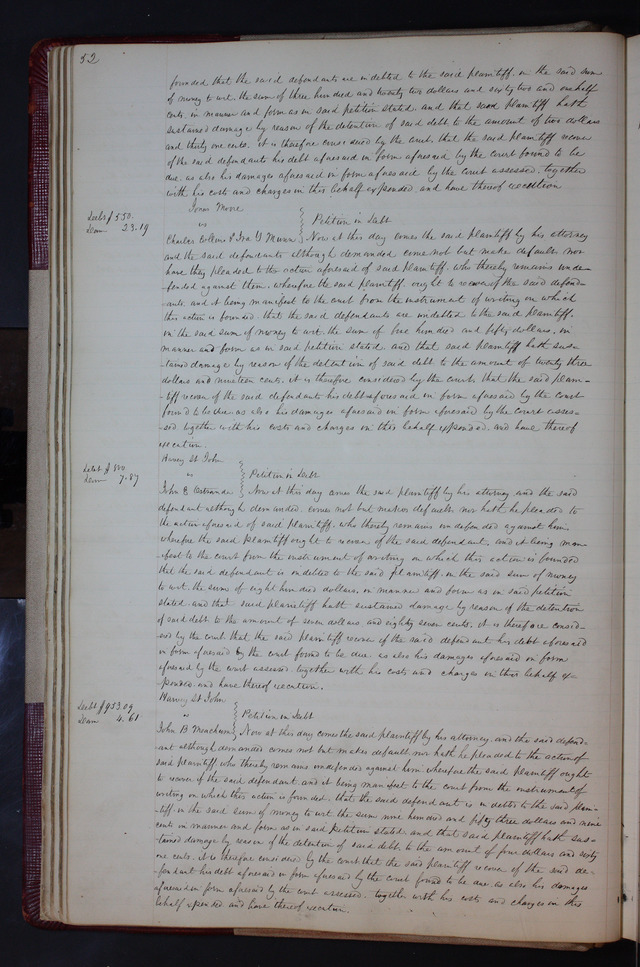 52
founded, that the said defendants are indebted to the said plaintiff, in the said sum
of money to wit, the sum of three hundred and twenty two dollars and sixty two and one half
cents, in manner and form as in said petition stated, and that said plaintiff hath
sustained damage by reason of the detention of said debt to the amount of two dollars
and thirty one cents. it is therefore considered by the court, that the said plaintiff recover
of the said defendants his debt aforesaid in form aforesaid by the court found to be
due, as also his damages aforesaid in form aforesaid by the court assessed, together
with his costs and charges in this behalf expended, and have thereof execution
Debt $550.
Dam 23.19
Jonas Moore
vs
Petition in Debt
Charles Collins & Ira Y Munn Now at this day comes the said plaintiff by his attorney
and the said defendants although demanded come not but make default, nor
have they pleaded to the action aforesaid of said plaintiff, who thereby remains unde-
fended against them, wherefore the said plaintiff ought to recover of the said defend-
ants, and it being manifest to the court from the instrument of writing on which
this action is founded, that the said defendants are indebted to the said plaintiff,
in the said sum of money to wit, the sum of five hundred and fifty dollars, in
manner and form as in said petition stated, and that said plaintiff hath sus-
tained damage by reason of the detention of said debt to the amount of twenty three
dollars and nineteen cents. it is therefore considered by the court, that the said plain-
tiff recover of the said defendants his debt aforesaid in form aforesaid by the court
found to be due, as also his damages aforesaid in form aforesaid by the court asses-
sed together with his costs and charges in this behalf expended, and have thereof
execution.
Debt $800
Dam 7.87
Harvey St John
vs
Petition in Debt
John E Now at this day comes the said plaintiff by his attorney, and the said
defendant although demanded, comes not but makes default, nor hath he pleaded to
the action aforesaid of said plaintiff, who thereby remains undefended against him
wherefore the said plaintiff ought to recover of the said defendant, and it being man-
ifest to the court from the instrument of writing on which this action is founded
that the said defendant is indebted to the said plaintiff, in the said sum of money
to wit, the sum of eight hundred dollars, in manner and form as in said petition
stated, and that said plaintiff hath sustained damage by reason of the detention
of said debt to the amount of seven dollars and eighty seven cents. it is therefore consid-
ered by the court that the said plaintiff recover of the said defendant his debt aforesaid
in form aforesaid by the court found to be due as also his damages aforesaid in form
aforesaid by the court assessed, together with his costs and charges in this behalf ex-
pended, and have thereof execution.
Debt $953.09
Dam 4.61
Harvey St John
vs
Petition in Debt
John B Now at this day comes the said plaintiff by his attorney, and the said defend-
ant although demanded comes not but makes default, nor hath he pleaded to the action of
said plaintiff, who thereby remains undefended against him wherefore the said plaintiff ought
to recover of the said defendant, and it being manifest to the court from the instrument of
writing on which this action is founded, that the said defendant is indebted to the said plain-
tiff, in the said sum of money to wit the sum nine hundred and fifty three dollars and nine
cents in manner and form as in said petition stated, and that said plaintiff hath sus-
tained damage by reason of the detention of said debt, to the amount of four dollars and sixty
one cents. it is therefore considered by the court that the said plaintiff recover of the said de-
fendant his debt aforesaid in form aforesaid by the court found to be due, as also his damages
aforesaid in form aforesaid by the court assessed, together with his costs and charges in this
behalf expended and have thereof execution.